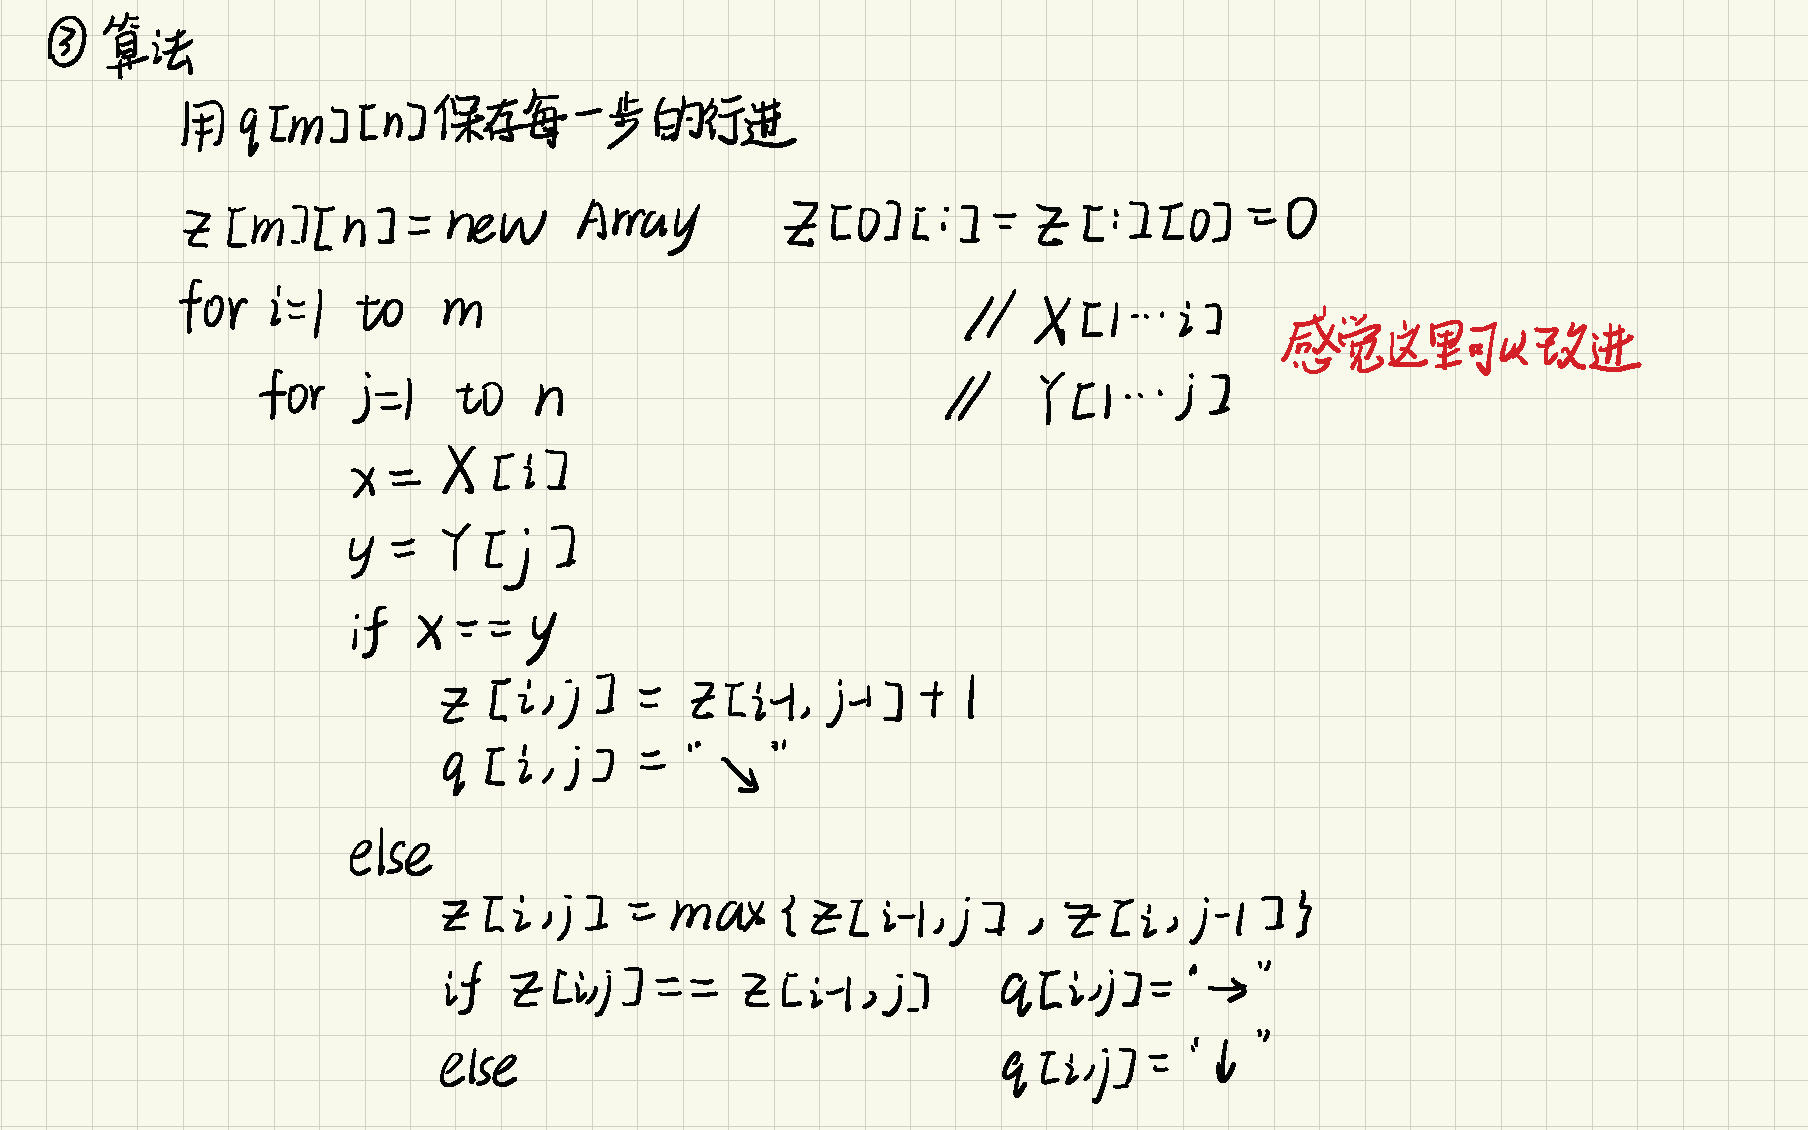 ③ 算法
用 q[m][n] 保存每一步的行进
z[m][n] = new Array Z[0][:] = Z[:][0] = 0
for i=1 to m // X[1…i]
感觉这里可以改进
for j=1 to n // Y[1…j]
x = X[i]
y = Y[j]
if x == y
z[i,j] = z[i-1, j-1] + 1
q[i,j] = "↘"
else
z[i,j] = max{z[i-1,j], z[i,j-1]}
if z[i,j] == z[i-1,j] q[i,j] = "→"
else q[i,j] = "↓"